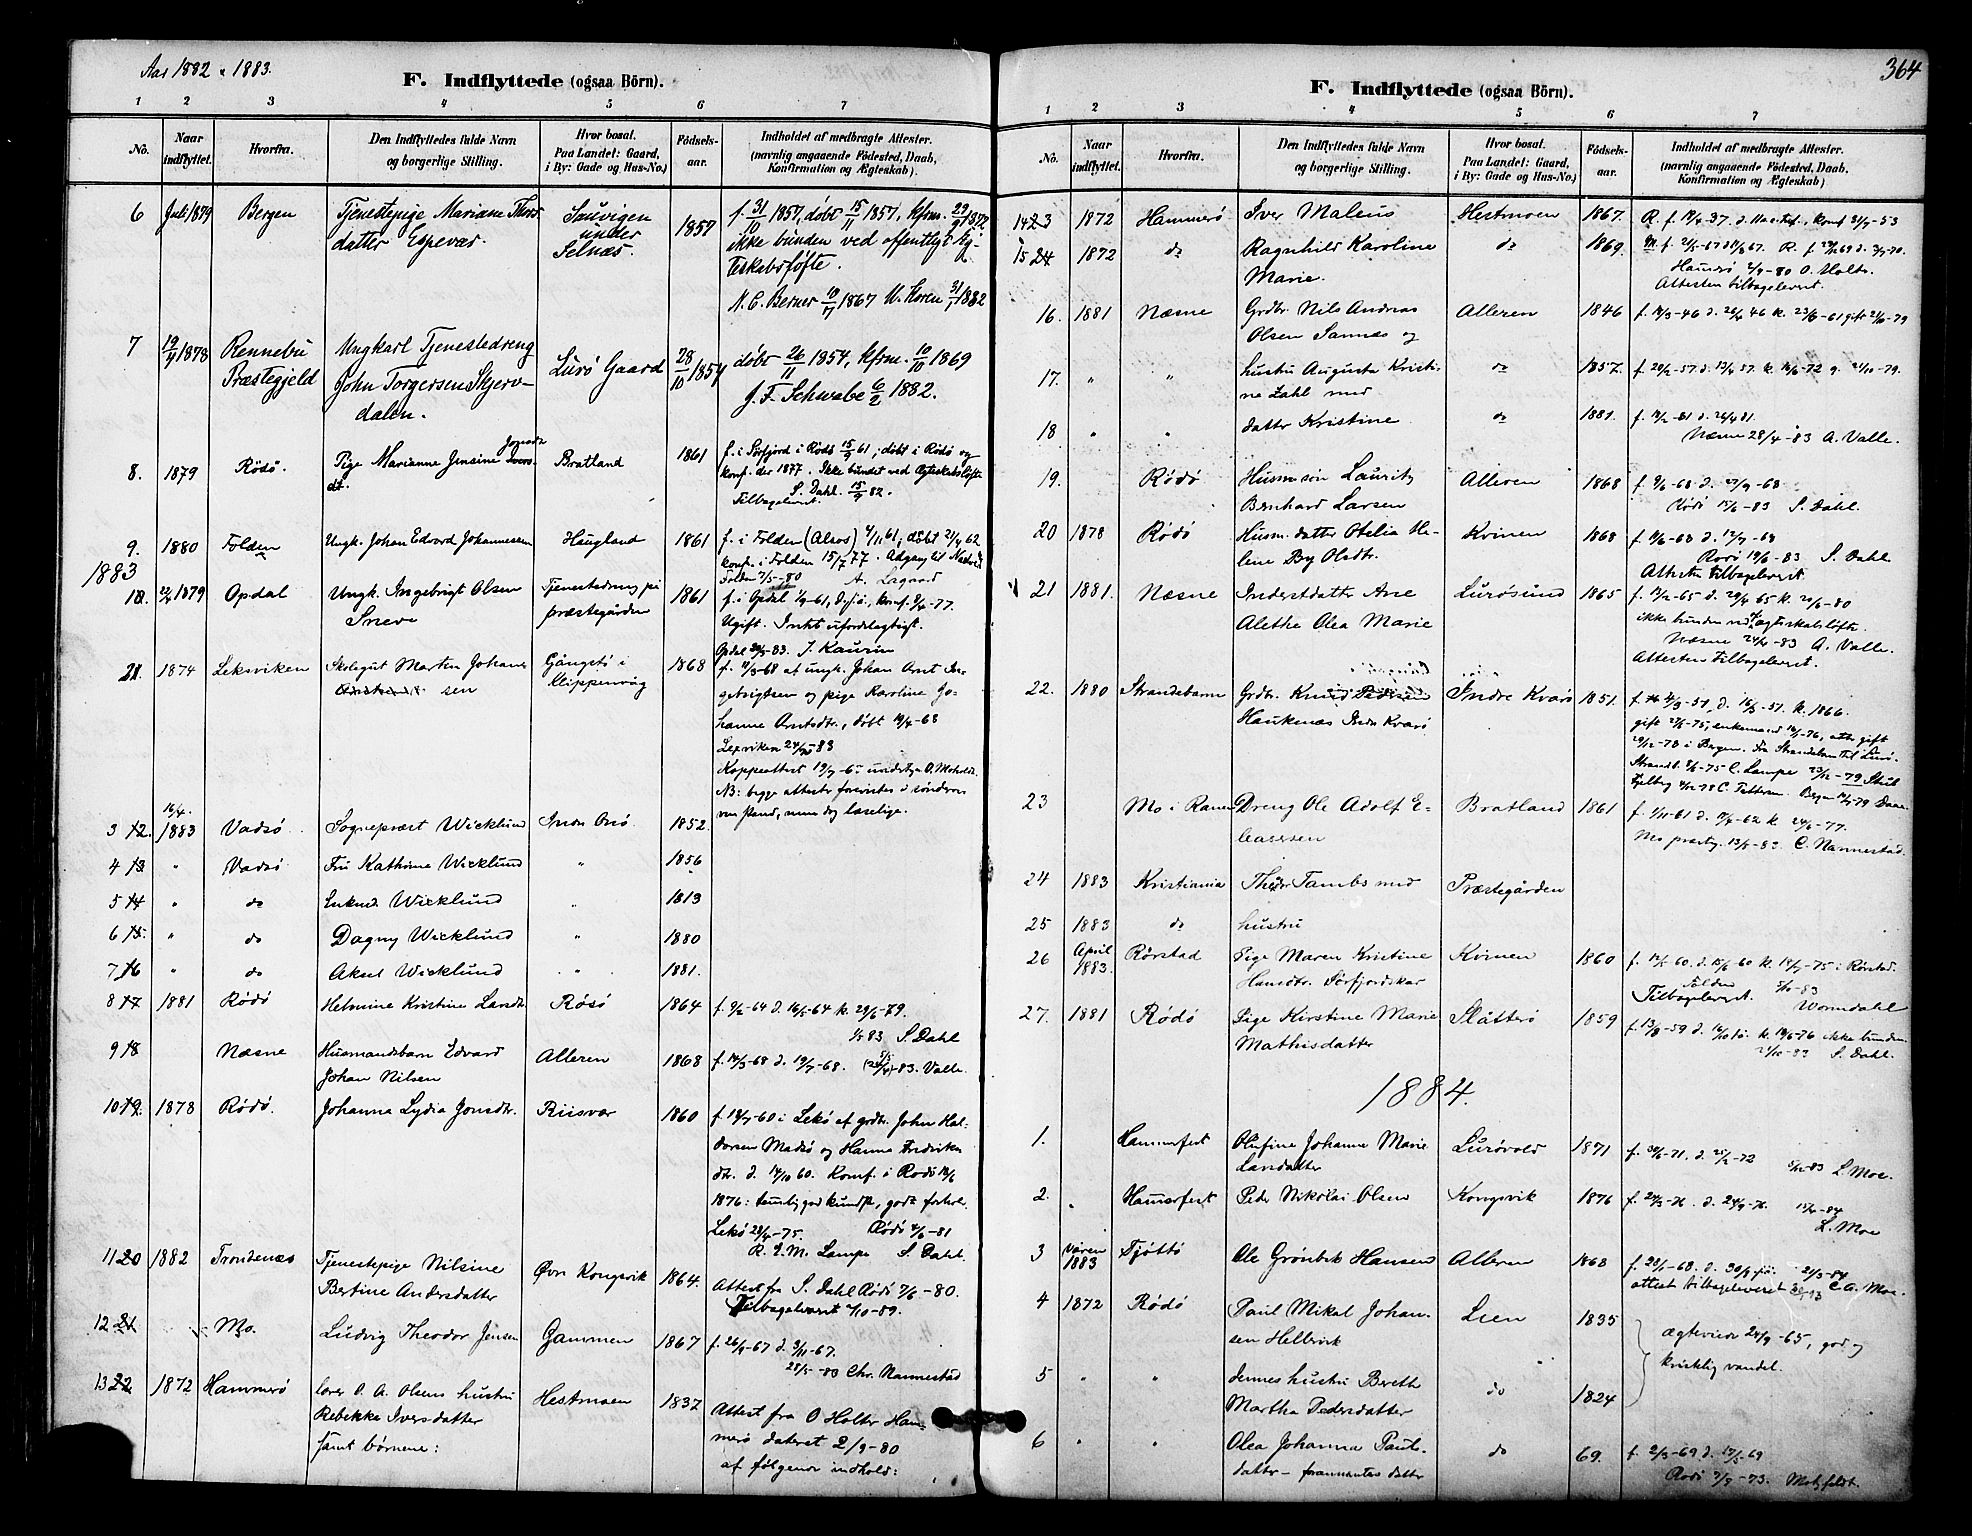 Aar 1882 & 1883.
F. Indflyttede (ogsaa Börn).
1 2 3 4 5 6 7
No. Naar indflyttet. Hvorfra. Den Indflyttedes fulde Navn og borgerlige Stilling. Hvor bosat. Paa Landet: Gaard, i By: Gade og Hus-No.) Födselsaar. Indholdet af medbragte Attester. (navnlig angaaende Födested, Daab, Konfirmation og Ægteskab).
6 Juli 1879 Bergen Tjenestepige Mariane Thors- Sauvigen 1857 f. 31/10 1857, døbt 15/11 1857, kfrm. 29/9 1872
datter Espevær. under ikke bunden ved offentligt Æg-
Selnæs. teskabsløfte.
N. C. Berner 10/7 1867 W. Koren 31/7 1882
7 19/4 1878 Rennebu Ungkarl Tjenestedreng Lurø Gaard 28/10 1854 døbt 26/11 1854, kfrm. 10/10 1869
Præstegjeld John Torgersen Skjerv- J. F. Schwabe 6/2 1882.
dalen.
8. 1879 Rödö. Pige Marianne Jensine Bratland 1861 f. i Sörfjord i Rödö 15/9 61; döbt i Rödö og
dt. konf. der 1877. Ikke bundet ved ægteskabsløfte
S. Dahl. 15/9 82.
Tilbageleveret.
9. 1880 Folden Ungk. Johan Edvard Johannessen Haugland 1861 f. i Folden (Alsos) 4/11 61, döbt 21/4 62
konf. i Folden 15/7 77. Adgang til
Folden 7/5-80 A. Lagaard
1883
1. 22/4 1879 Opdal Ungk. Ingebrigt Olsen Tjenestedreng på 1861 f. i Opdal 1/9-61, d. s. å., konf. 3/6-77.
Sneve præstegården Ugift. Intet ufordelagtigt.
Opdal 20/5-83. J. Kaurin
2. 1874 Leksviken Skolegut Martin Johan Gjångstö i 1868 f. 11/3-68 af ungk. Johan Arnt In-
sen Klippenvåg gebrigtsen og pige Karoline Jo-
hanne Arntsdtr., döbt 19/4-68
Lexviken 24/10-83
Koppeattest 19/7-6
NB: begge attester forevistes i sönderre-
ven stand, men dog læselige.
3 12. 16/4 1883 Vadsö Sogneprest Wicklund Indre Onö 1852.
4 13 " Vadsö Fru Kathrine Wicklund " 1856
5 14 " do Enkefru Wicklund " 1813
6 15. " do Dagny Wicklund " 1880
7 16 " do Aksel Wicklund " 1881.
8 17 1881 Rödö Helmine Kristine Larsdtr. Rösö 1864 f. 9/2-64 d. 16/5-64 k. 29/6-79.
1/5 83 S. Dahl
9 18 Næsne Husmandsbarn Edvard Alleren 1868 f. 14/3-68 d. 19/7-68. -83. Valle.
Johan Nilsen
10 19. 1878 Rödö. Johanna Lydia Jonsdtr. Riisvær 1860 f. 18/7-60 i Lekö af grdbr. John Hal-
dorsen Madsö og Hanna Fredrikes
dtr. d. 14/10 60. Konf. i Rödö
1876: temmelig god kundsk., godt forhol.
Lekö 28/4-75. Rödö 4/6-81
R. J. M. Lampe S. Dahl.
11 20 1882 Trondenæs Tjenestepige Nilsine Övre Kongsvik 1864. Attest fra S. Dahl Rödö 7/6-80.
Bertine Andersdatter Tilbageleveret 4/10-89.
12 21 Mo. Ludvig Theodor Jensen Gammen 1867 f. 26/9-67 d. 3/11-67.
28/5-83 Chr. Nannestad
13 22 1872 Hammerö lærer O. A. Olsens hustru Hestmoen 1837 Attest fra O Holter Ham-
Rebekke Iversdatter merö dateret 2/9-80
samt börnene: af fölgende indhold:
364
F. Indflyttede (ogsaa Börn).
1 2 3 4 5 6 7
No. Naar indflyttet. Hvorfra. Den Indflyttedes fulde Navn og borgerlige Stilling. Hvor bosat. Paa Landet: Gaard, i By: Gade og Hus-No.) Födselsaar. Indholdet af medbragte Attester. (navnlig angaaende Födested, Daab, Konfirmation og Ægteskab)
14 23 1872 Hammerö Iver Maleus Hestmoen 1867.
15 24 1872 do Ragnhild Karoline do 1869.
Marie. Hamerö 2/9-80 O. Holter.
Attesten tilbageleveret.
16. 1881 Næsne Grdbr. Nils Andreas Alleren 1846 f. 14/3-46 d. 26/4 46 k. 23/6-61 gift 21/10-79
Olsen Sannæs og
17. " " hustru Augusta Kristi- do 1857. f. 20/2-57 d. 13/4 57. k. 16/6-72 g. 21/10-79.
ne Zahl med
18 " " datter Kristine do 1881. f. 14/2-81 d. 26/4 81.
Næsne 28/4-83 A. Valle.
19. Rödö Husm. sön Lauritz Alleren 1868 f. 9/6-68 d. 27/9-68
Bernhard Larsen Rödö 15/6-83 S. Dahl.
20 1878 Rödö Husm. datter Otelia He- Kvinen 1868 f. 11/6-68 d. 12/7-68
lene By Olsdtr. Rödö 19/6-83 S. Dahl
Attesten tilbageleveret.
21 1881. Næsne Inderstdatter Ane Lurösund 1865 f. 17/12-65 d. 29/4 65 k. 20/6-80
Alethe Olea Marie ikke bunden ved ægteskabslöfte.
Næsne 24/4-83 A. Valle.
Attesten tilbageleveret.
22. 1880 Strandebarm Grdbr. Knud Pedersen Indre Kvarö 1851. f. 4/3-51, d. 16/3-51. k. 1866.
Haukenæs Indre Kvarö gift 27/6-75, enkemand 16/1-76, atter gift
29/12-78 i Bergen. Fra Strandebarm til Lurö.
Strandb. 8/6-75 C. Lampe 23/12-79
23 Mo i Ranen Dreng Ole Adolf E- Bratland 1861 f. 1/11-61 d. 9/4-62 k. 24/6-77.
leasersen Mo præstg. 13/5-83 C. Nannestad.
24 1883 Kristiania Theodor Tambs med Præstegården
25 1883 do hustru
26 April 1883. Rörstad Pige Maren Kristine Kvinen 1860 f. 12/5 60. d. 15/6 60 k. 18/7-75 i Rörstad.
Hansdtr. Sörfjordskar Folden 5/10-83
Tilbageleveret. Worndahl
27. 1881 Rödö Pige Kirstine Marie Slåtterö 1859 f. 13/8-59 d. 16/10 s. å. k. 18/6-76 ikke bunden
Mathisdatter 21/10-83 S. Dahl.
1884.
1. Hammerfest Olufine Johanne Marie Lurövold 1871 f. 30/6-71. d. 25/2-72 5/12-83 L. Moe.
Larsdatter
2. " Hamerfest Peder Nikolai Olsen Kongsvik 1876 f. 24/3-76. d. 24/9-76. 15/1-84
L. Moe
3 Våren 1883 Tjöttö Ole Grönbek Hansen Alleren 1868 f. 28/1-68. d. 30/8 21/3-84
attest tilbageleveret C. A. Moe.
4 1872 Rödö Paul Mikal Johan- Lien 1835 ægteviede 24/9-65, god og
sen Hellervik kristelig vandel.
5 " " dennes hustru Berethe do 1824
Martha Pedersdatter
6 " " Olea Johanna Pauls- do 69. f. 2/3-69 d. 17/5-69
datter – fornævntes datter Rödö 7/9-73. Motzfeldt.